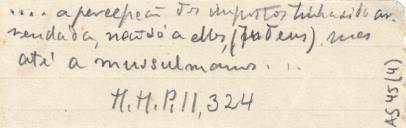 .... a percepção dos impostos tinha sido ar-
rendada, não só a elles, (judeus) mas
até a mussulmanos...
H. H. P. II, 324
AS 45 (4)